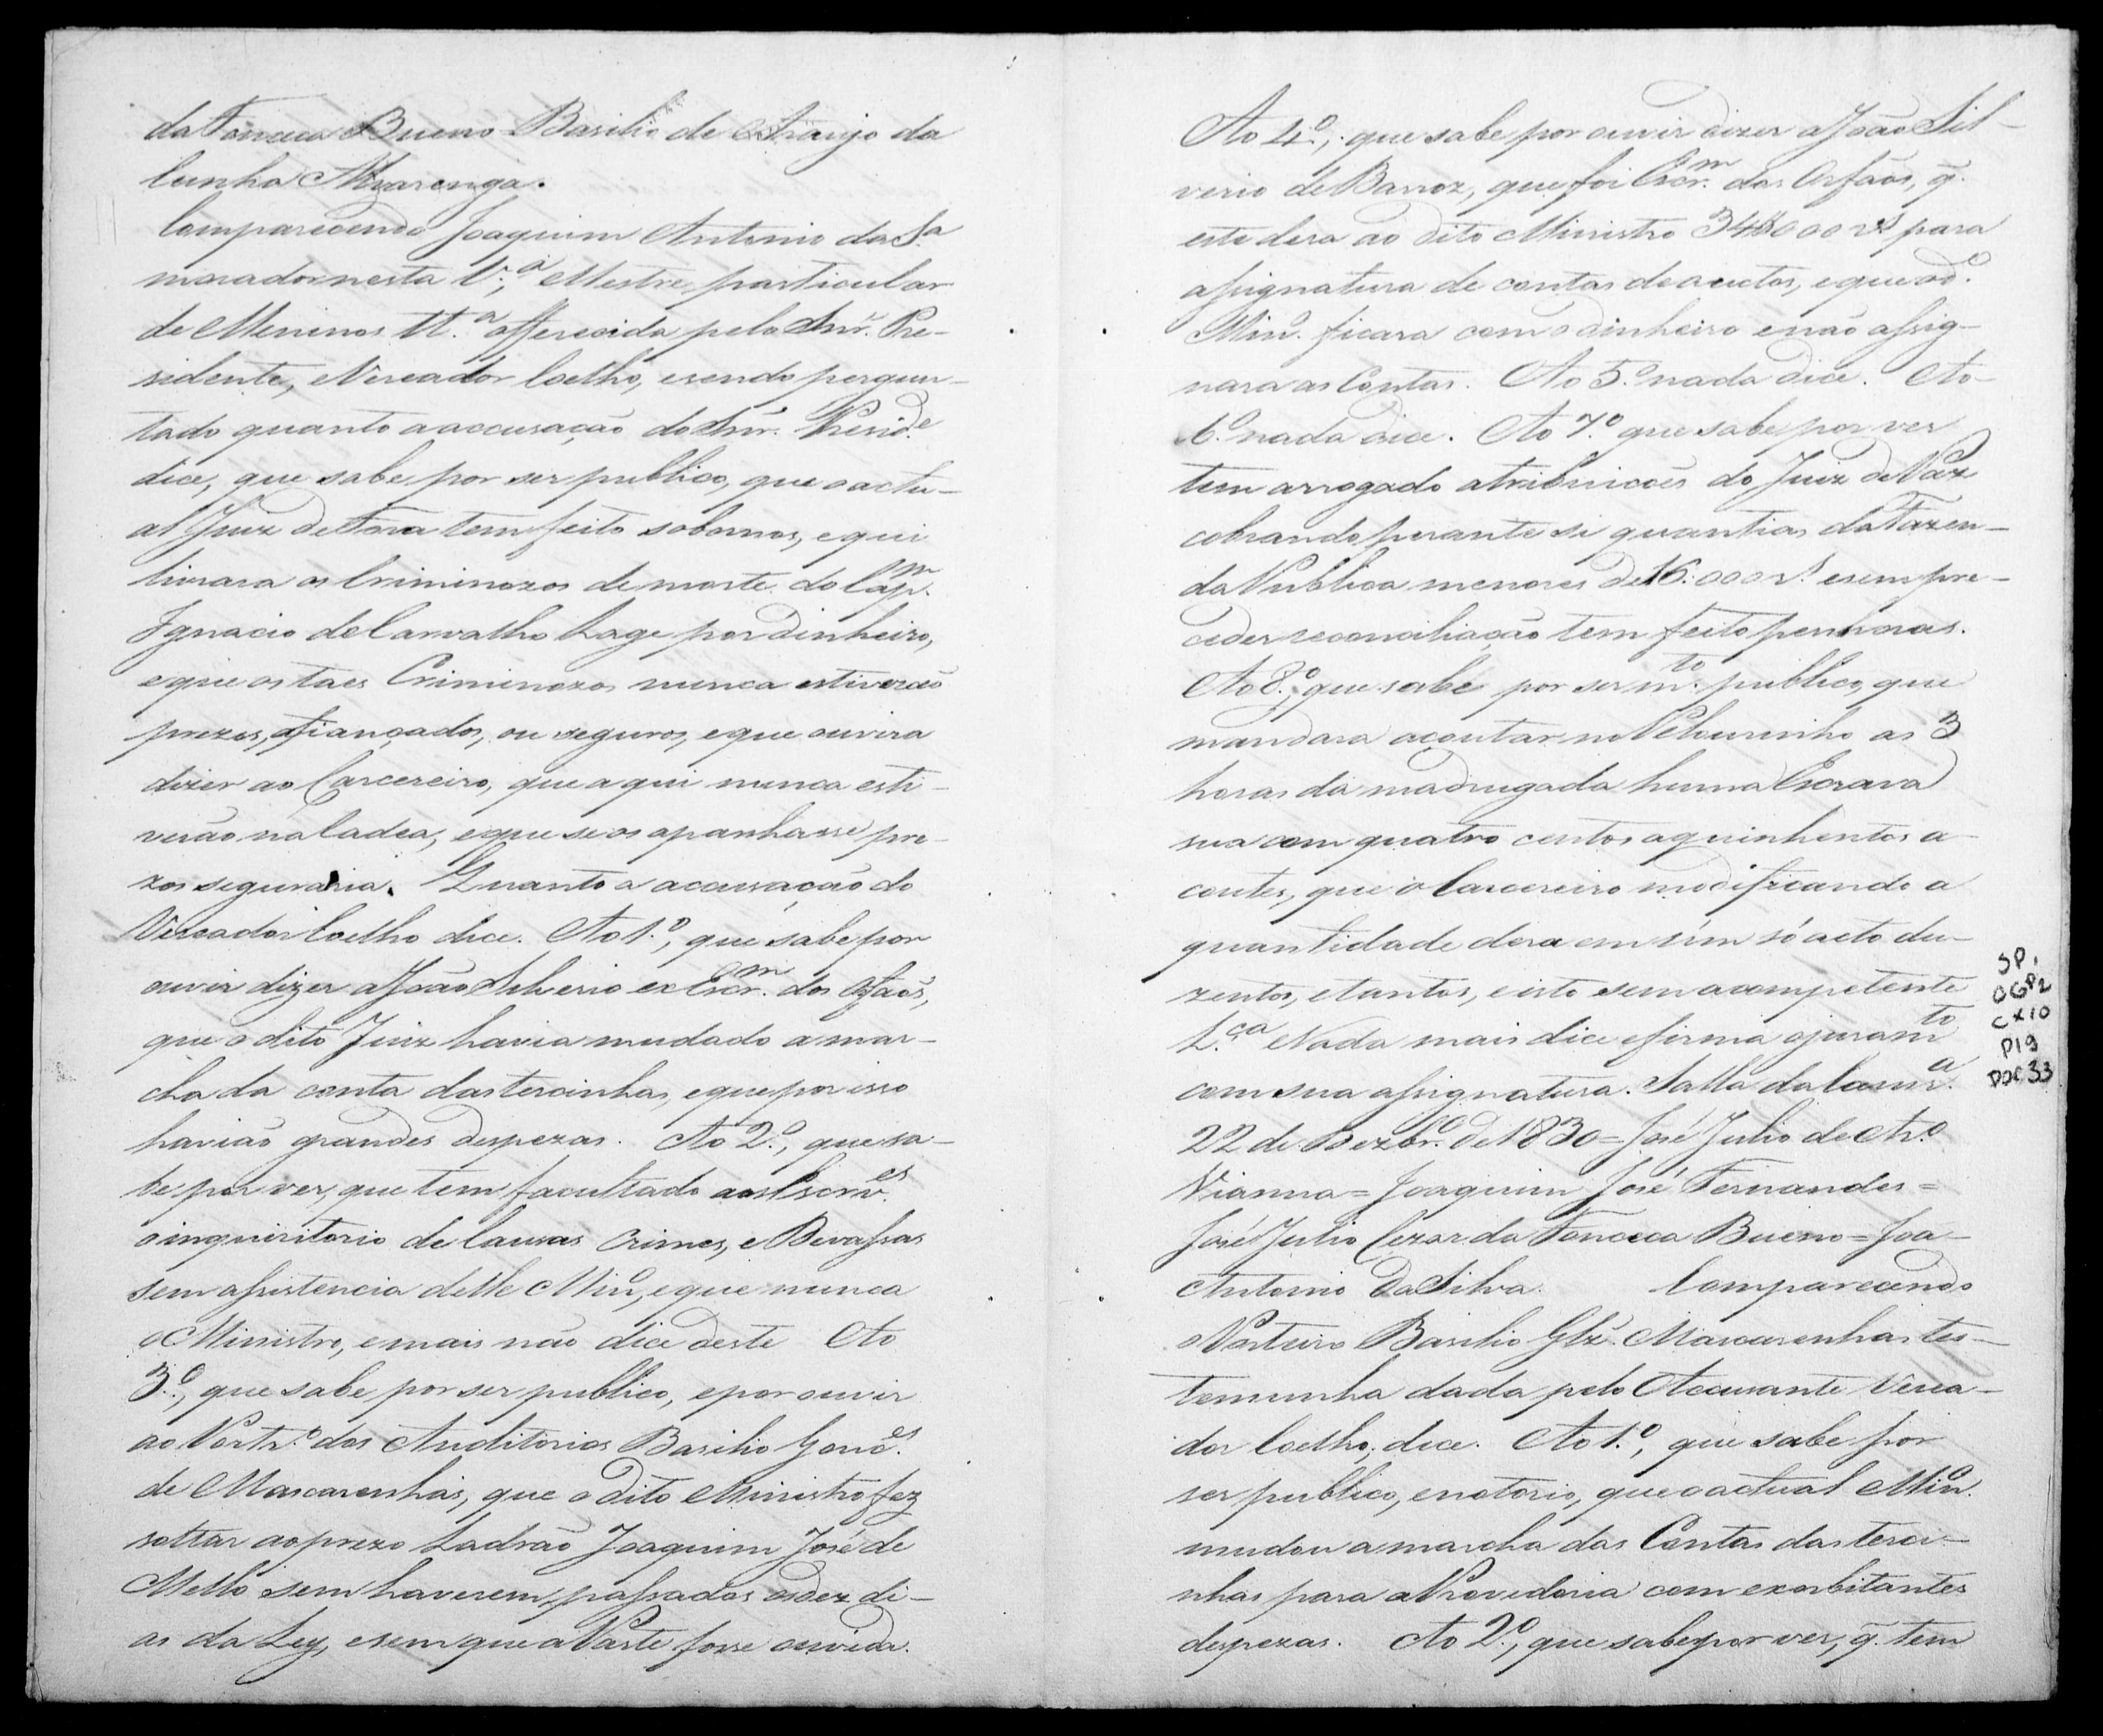 da Fonceca Bueno Basilio de Araujo da
Cunha Alvarenga.
Comparecendo Joaquim Antonio da S.ª
morador nesta V.ª, Mestre particular
de Meninos tt.ª offerecida pelo Snr̃. Pre-
sidente, e Vereador Coelho, e sendo pergun-
tado quanto a accusação do Snr̃. Presid.e
dice, que sabe por ser publico, que o actu-
al Juiz de Fora tem feito sobornos, e qui
livrara os Criminozos de morte do Cap.m
Ignacio de Carvalho Lage por dinheiro,
e que os taes Criminozos nunca estiverão
prezos, afiançados, ou seguros, e que ouvira
dizer ao Carcereiro, que a qui nunca esti-
verão na Cadea, e que se os apanhasse pre-
zos seguraria. Quanto a accusação do
Vereador Coelho dice. Ao 1.º, que sabe por
ouvir dizer a João Silverio ex Escr.m dos Orfãos,
que o dito Juiz havia mudado a mar-
cha da conta das tercinhas, e que por isso
havião grandes despezas. Ao 2.º, que sa-
be por ver, que tem facultado aos Escriv.es
o inquiritorio de Cauzas Crimes, e Devassas
sem assistencia delle Min.o, e que nunca
o Ministro, e mais não dice deste Ao
3.º, que sabe por ser publico, e por ouvir
ao Portr.º dos Auditorios Basilio Gonc.es
de Mascarenhas, que o dito Ministro fez
soltar ao prezo Ladrão Joaquim José de
Mello sem haverem passados os dez di-
as da Ley, e sem que a Parte fosse ouvida.
Ao 4.º, que sabe por ouvir dizer a João Sil-
verio de Barroz, que foi Escr.m dos Orfãos, q̃.
este dera ao dito Ministro 34$000 rs̃ para
assignatura de contas de auctos, e que o d.º
Min.o ficara com o dinheiro e não assig-
nara as Contas. Ao 5.º nada dice. Ao
6.º nada dice. Ao 7.º que sabe por ver
tem arrogado atribuicoẽs do Juiz de Paz
cobrando perante si quantias da Fazen-
da Publica menores de 16.000 rs. e sem pre-
ceder reconciliação tem feito penhoras.
Ao 8.º, que sabe por ser m.to publico, que
mandara açoutar no Pelourinho as 3
horas da madrugada huma Escrava
sua com quatro centos a quinhentos a-
coutes, que o Carcereiro modificando a
quantidade dera em sim só acto du-
zentos, e tantos, e isto sem a competente
L.ça Nada mais dice e firma o juram.to
com sua assignatura. Salla da Camr.ª
22 de Dezbr.º de 1830 = José Julio de Ar.º
Vianna = Joaquim José Fernandes =
José Julio Cezar da Fonceca Bueno = Joa-
Antonio da Silva. Comparecendo
o Porteiro Basilio Glz̃. Mascarenhas tes-
temunha dada pelo Accusante Verea-
dor Coelho, dice. Ao 1.º, que sabe por
ser publico, e notorio, que o actual Min.o
mudou a marcha das Contas das terci-
nhas para a Provedoria com exorbitantes
despezas. Ao 2.º, que sabe por ver, q̃. tem
SP.
OGP2
CX10
P19
DOC 33